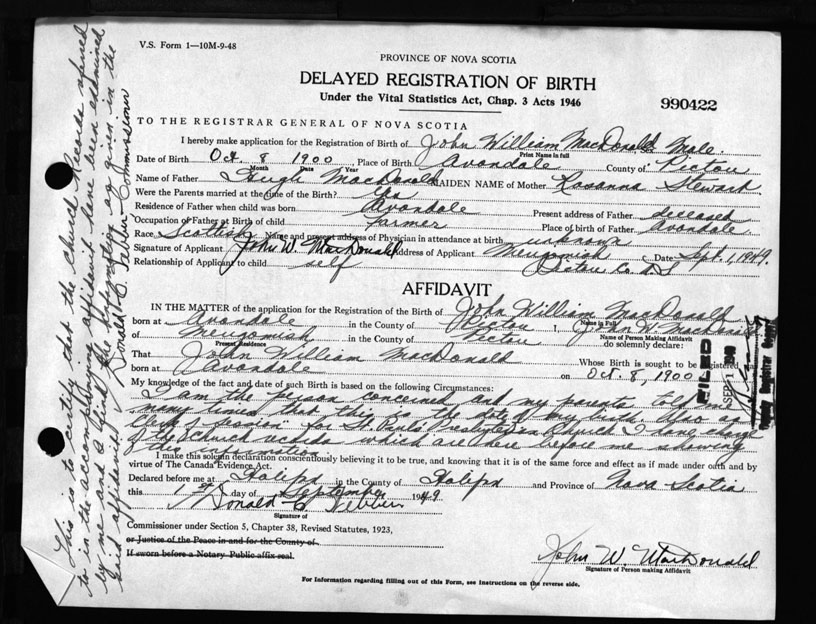 V.S. Form 1—10M-9-48
PROVINCE OF NOVA SCOTIA
DELAYED REGISTRATION OF BIRTH
Under the Vital Statistics Act, Chap. 3 Acts 1946
990422
TO THE REGISTRAR GENERAL OF NOVA SCOTIA
I hereby make application for the Registration of Birth of John William MacDonald Male
Print Name in full
Date of Birth Oct. 8 1900 Place of Birth Avondale County of Pictou
Month Date Year
Name of Father Hugh MacDonald MAIDEN NAME of Mother Rosanna Stewart
Were the Parents married at the time of the Birth? Yes
Residence of Father when child was born Avondale Present address of Father deceased
Occupation of Father at Birth of child farmer Place of birth of Father Avondale
Race Scottish Name and present address of Physician in attendance at birth unknown
Signature of Applicant John W. MacDonald Address of Applicant Merigomish Date Sept. 1, 1949.
Relationship of Applicant to child self Pictou Co. N.S.
AFFIDAVIT
IN THE MATTER of the application for the Registration of the Birth of John William MacDonald
born at Avondale in the County of Pictou I, John W. MacDonald
Name in Full
of Merigomish in the County of Pictou do solemnly declare:
Present Residence Name of Person Making Affidavit
That John William MacDonald Whose Birth is sought to be registered was
born at Avondale on Oct. 8, 1900
My knowledge of the fact and date of such Birth is based on the following Circumstances:
I am the person concerned and my parents told me
many times that this is the date of my birth. Also as
"Clerk of Session" for St. Paul's Presbyterian Church I have charge
of the church records which are here before me showing
this information
I make this solemn declaration conscientiously believing it to be true, and knowing that it is of the same force and effect as if made under oath and by
virtue of The Canada Evidence Act.
Declared before me at Halifax in the County of Halifax and Province of Nova Scotia
this 1st day of September 1949
Donald C. Webber
Signature of
Commissioner under Section 5, Chapter 38, Revised Statutes, 1923,
or Justice of the Peace in and for the County of
If sworn before a Notary Public affix seal.
John W. MacDonald
Signature of Person making Affidavit
For Information regarding filling out of this Form, see Instructions on the reverse side.
FILED
SEP 1
Deputy Registrar General
This is to certify that the church Records referred
to in the accompanying affidavit have been examined
by me and I find the information as given in the
said affidavit
Donald C. Webber Commissioner